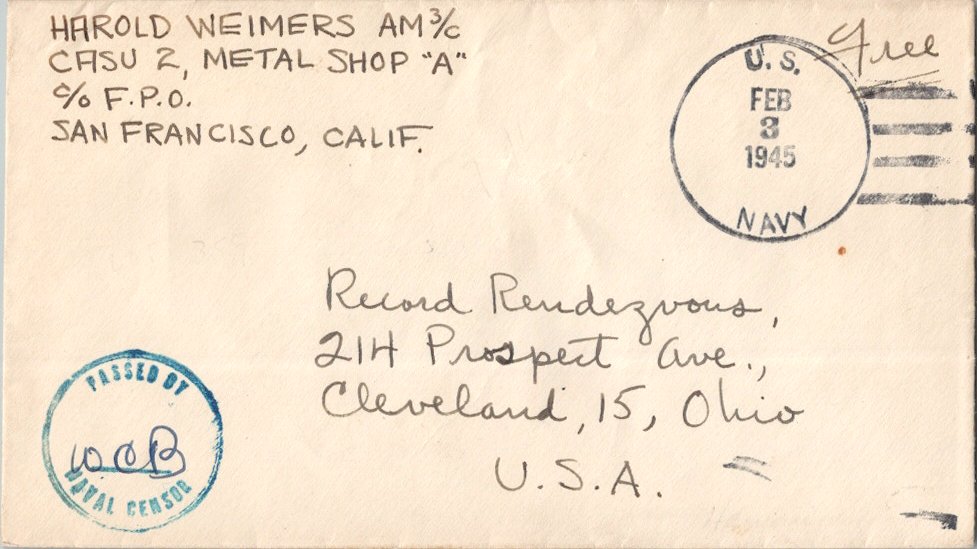 HAROLD WEIMERS AM 3/c
CASU 2, METAL SHOP "A"
c/o F.P.O.
SAN FRANCISCO, CALIF.
Free
U. S.
FEB
3
1945
NAVY
Record Rendezvous,
214 Prospect Ave.,
Cleveland, 15, Ohio
U.S.A.
PASSED BY
WCB
NAVAL CENSOR